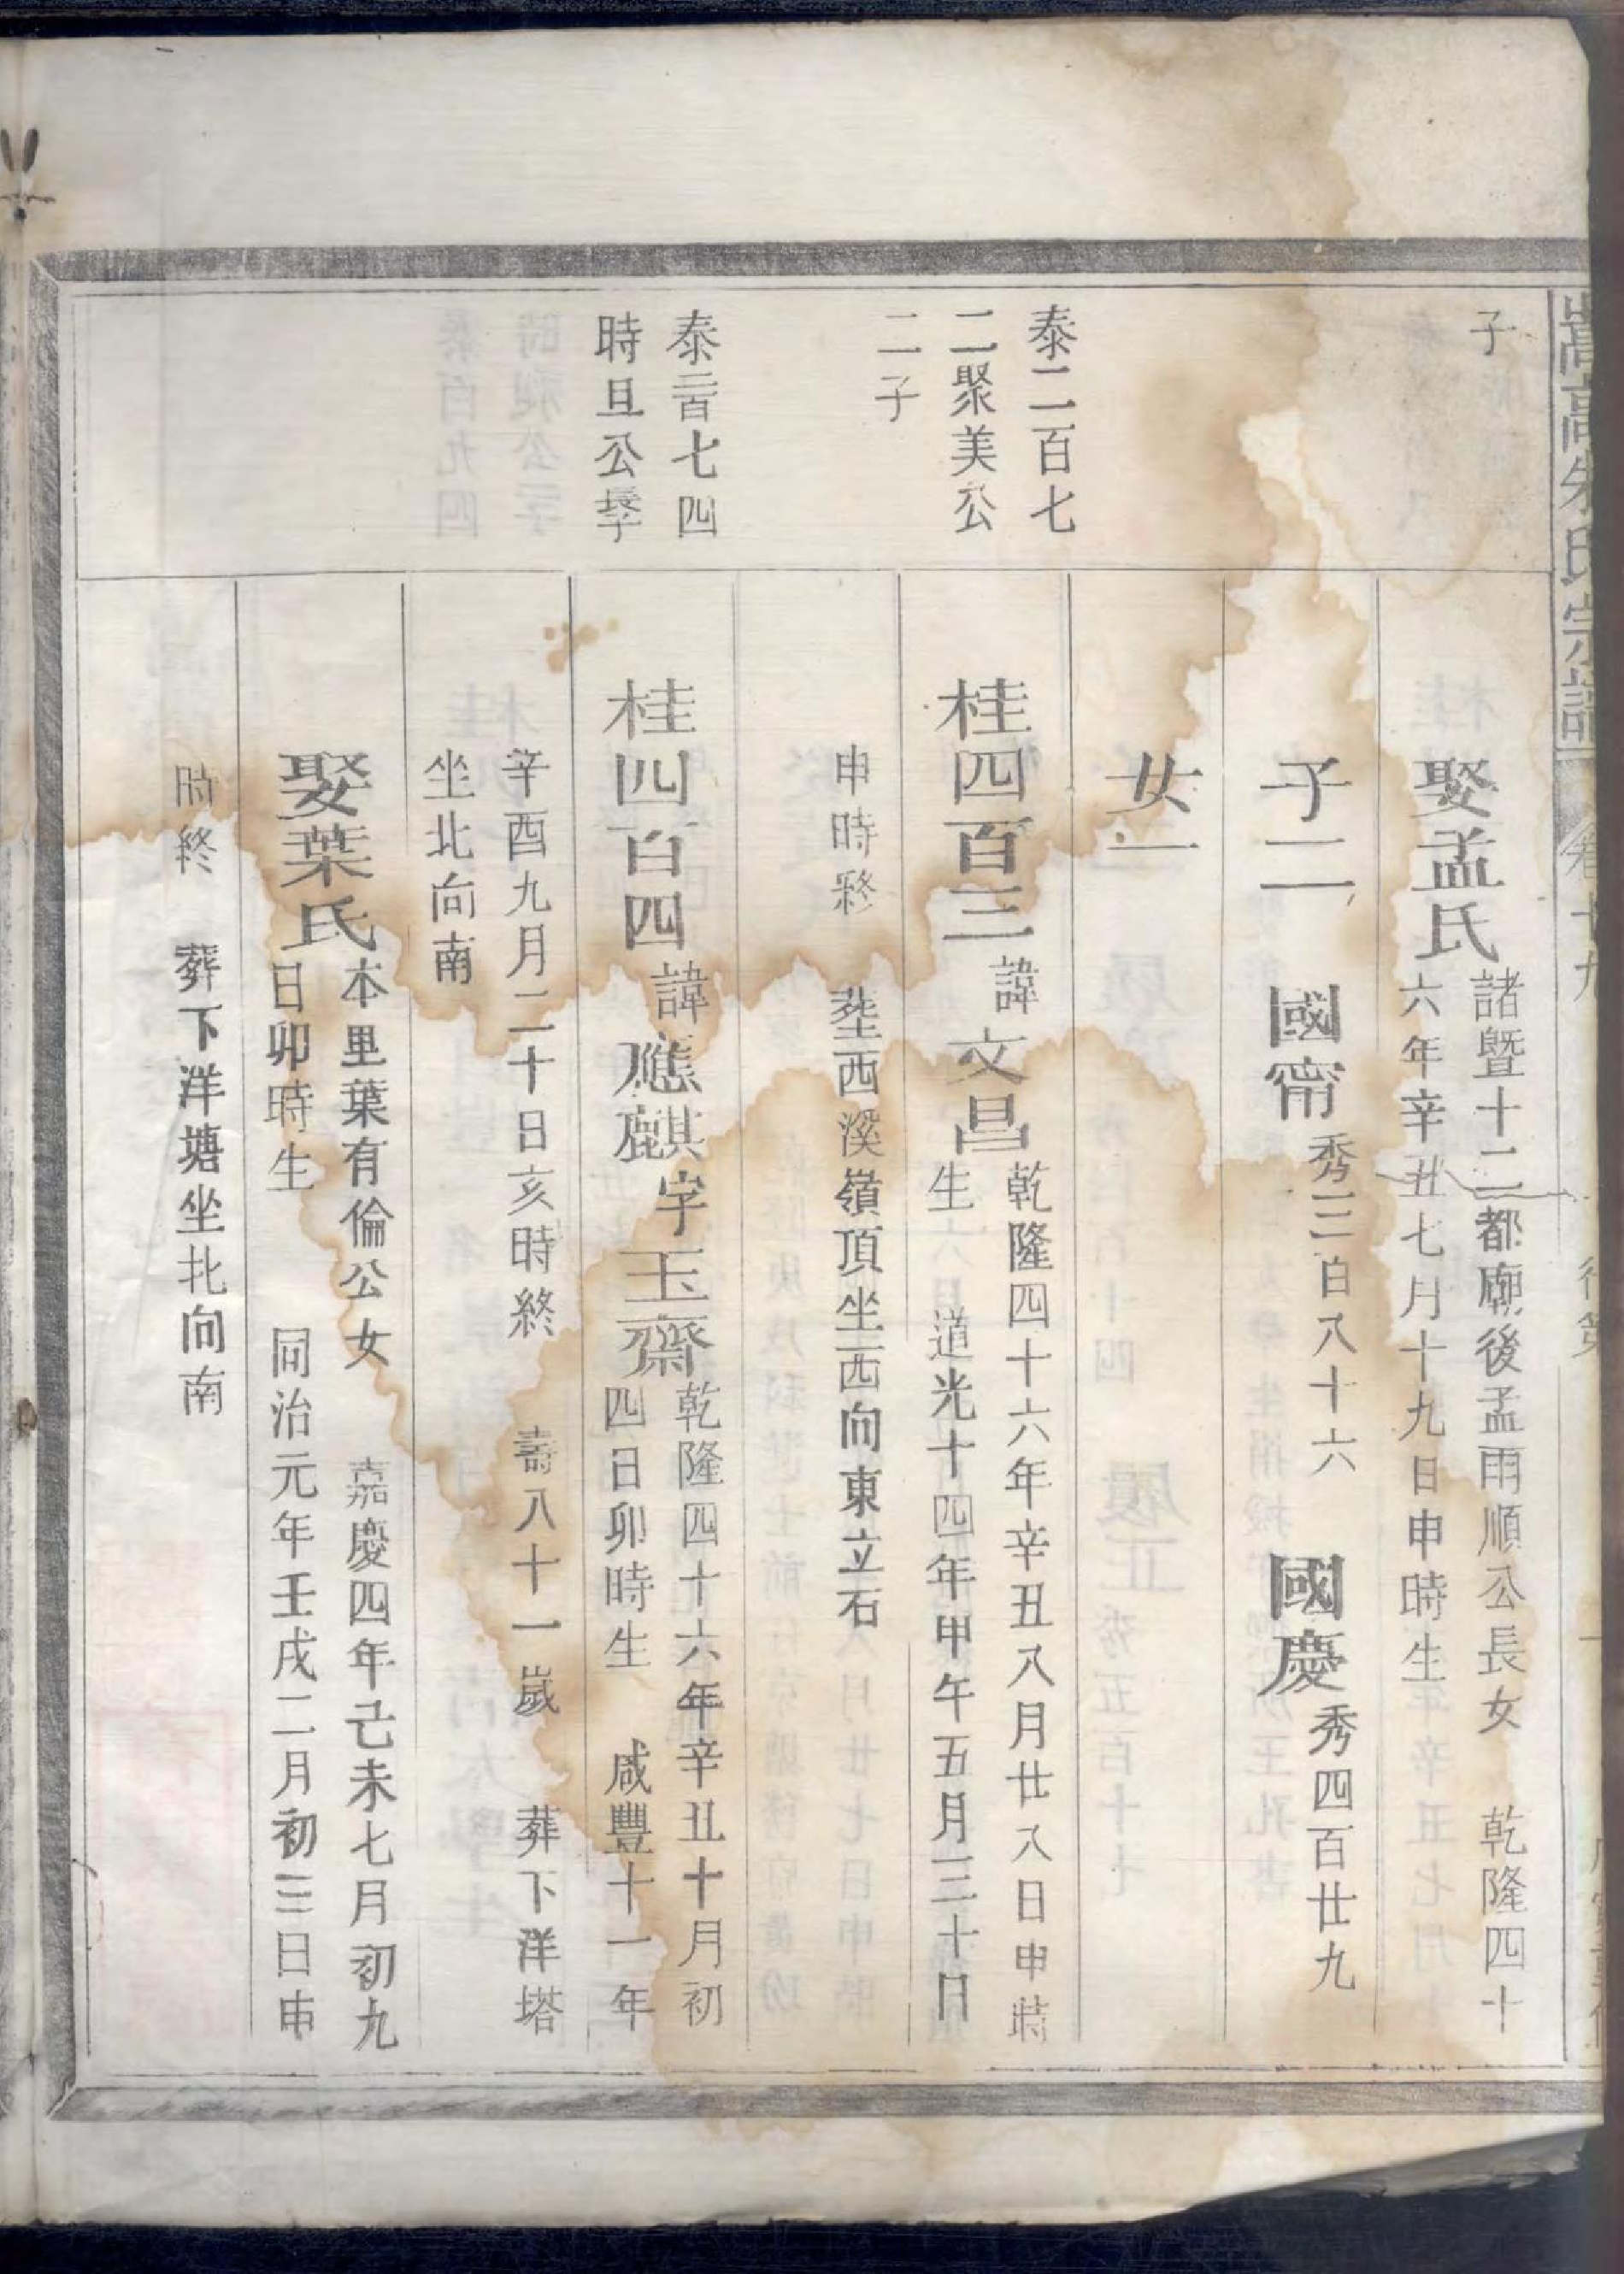 嵩高朱氏宗譜
卷十九
行第
子
娶孟氏
諸暨十二都廟後孟雨順公長女 乾隆四十
六年辛丑七月十九日申時生
子二 國甯 秀三百八十六 國慶 秀四百廿九
女一
泰二百七
二聚美公
二子
桂四百三 諱文昌
乾隆四十六年辛丑八月廿八日申時
生 道光十四年甲午五月三十日
申時終 塟西溪嶺頂坐西向東立石
泰二百七四
時旦公長子
桂四百四 諱應麒 字玉齋
乾隆四十六年辛丑十月初
四日卯時生 咸豐十一年
辛酉九月二十日亥時終 壽八十一歲 葬下洋塔
坐北向南
娶葉氏
本里葉有倫公女 嘉慶四年己未七月初九
日卯時生 同治元年壬戌二月初三日申
時終 葬下洋塘坐北向南